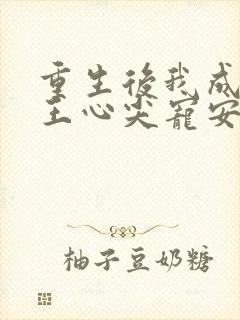 重生後我成
王心尖寵安
柚子豆奶糖